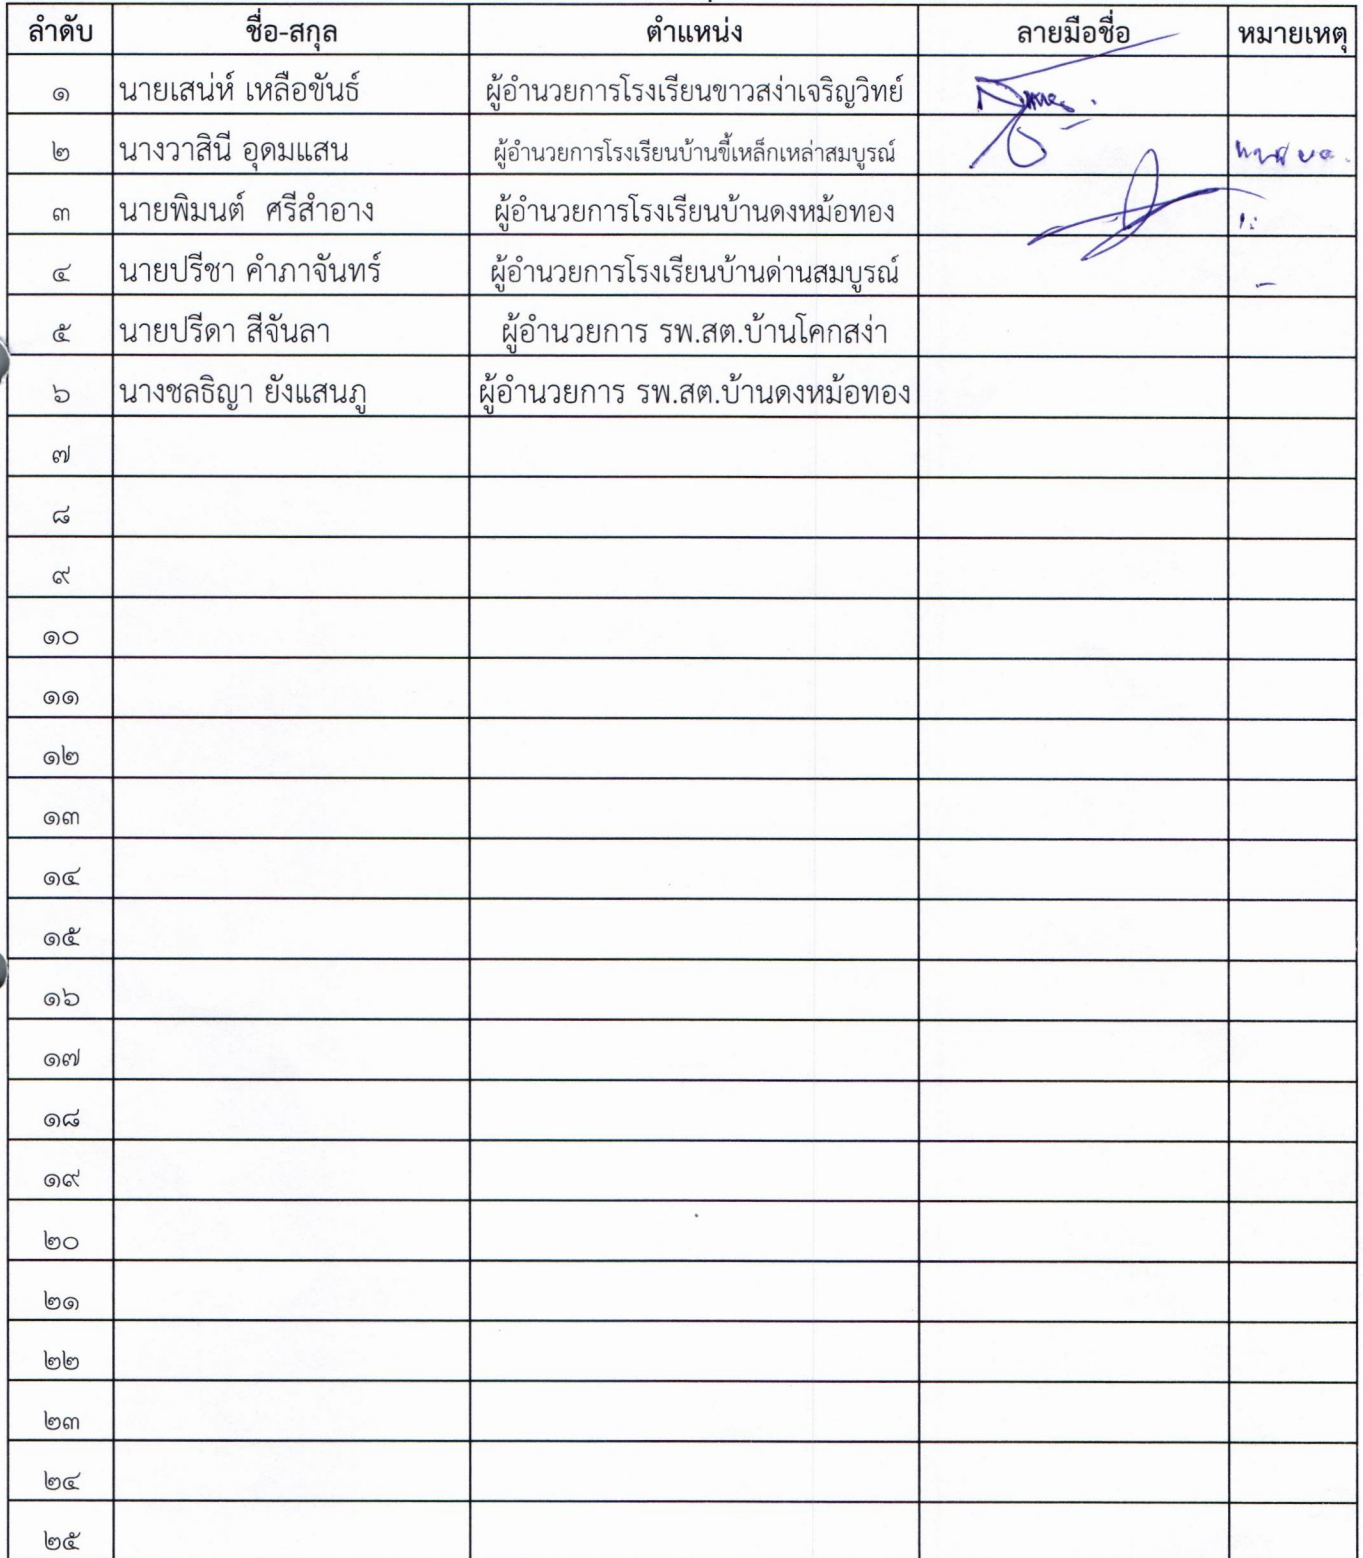 ลำดับ ชื่อ-สกุล ตำแหน่ง ลายมือชื่อ หมายเหตุ
๑ นายเสน่ห์ เหลือขันธ์ ผู้อำนวยการโรงเรียนขาวสง่าเจริญวิทย์
๒ นางวาสินี อุดมแสน ผู้อำนวยการโรงเรียนบ้านขี้เหล็กเหล่าสมบูรณ์
๓ นายพิมนต์ ศรีสำอาง ผู้อำนวยการโรงเรียนบ้านดงหม้อทอง
๔ นายปรีชา คำภาจันทร์ ผู้อำนวยการโรงเรียนบ้านด่านสมบูรณ์ -
๕ นายปรีดา สีจันลา ผู้อำนวยการ รพ.สต.บ้านโคกสง่า
๖ นางชลธิญา ยังแสนภู ผู้อำนวยการ รพ.สต.บ้านดงหม้อทอง
๗
๘
๙
๑๐
๑๑
๑๒
๑๓
๑๔
๑๕
๑๖
๑๗
๑๘
๑๙
๒๐
๒๑
๒๒
๒๓
๒๔
๒๕